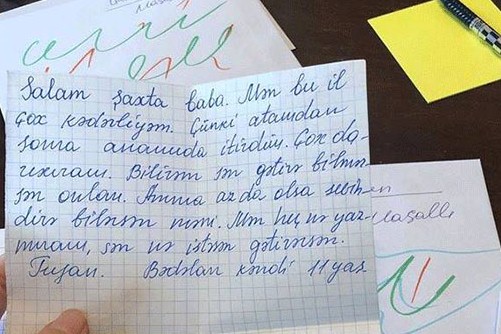 Masallı
Salam şaxta baba. Mən bu il
çox kədərliyəm. Çünki atamdan
sonra anamıda itirdim. Çox da-
rıxıram. Bilirəm sən gətirə bilmə-
sən onları. Amma azda olsa sevin
dirə bilərsən məni. Mən heç nə yaz-
mıram, sən nə istəsən gətirərsən.
Tuşan. Bədəlan kəndi 11 yaş
Masallı